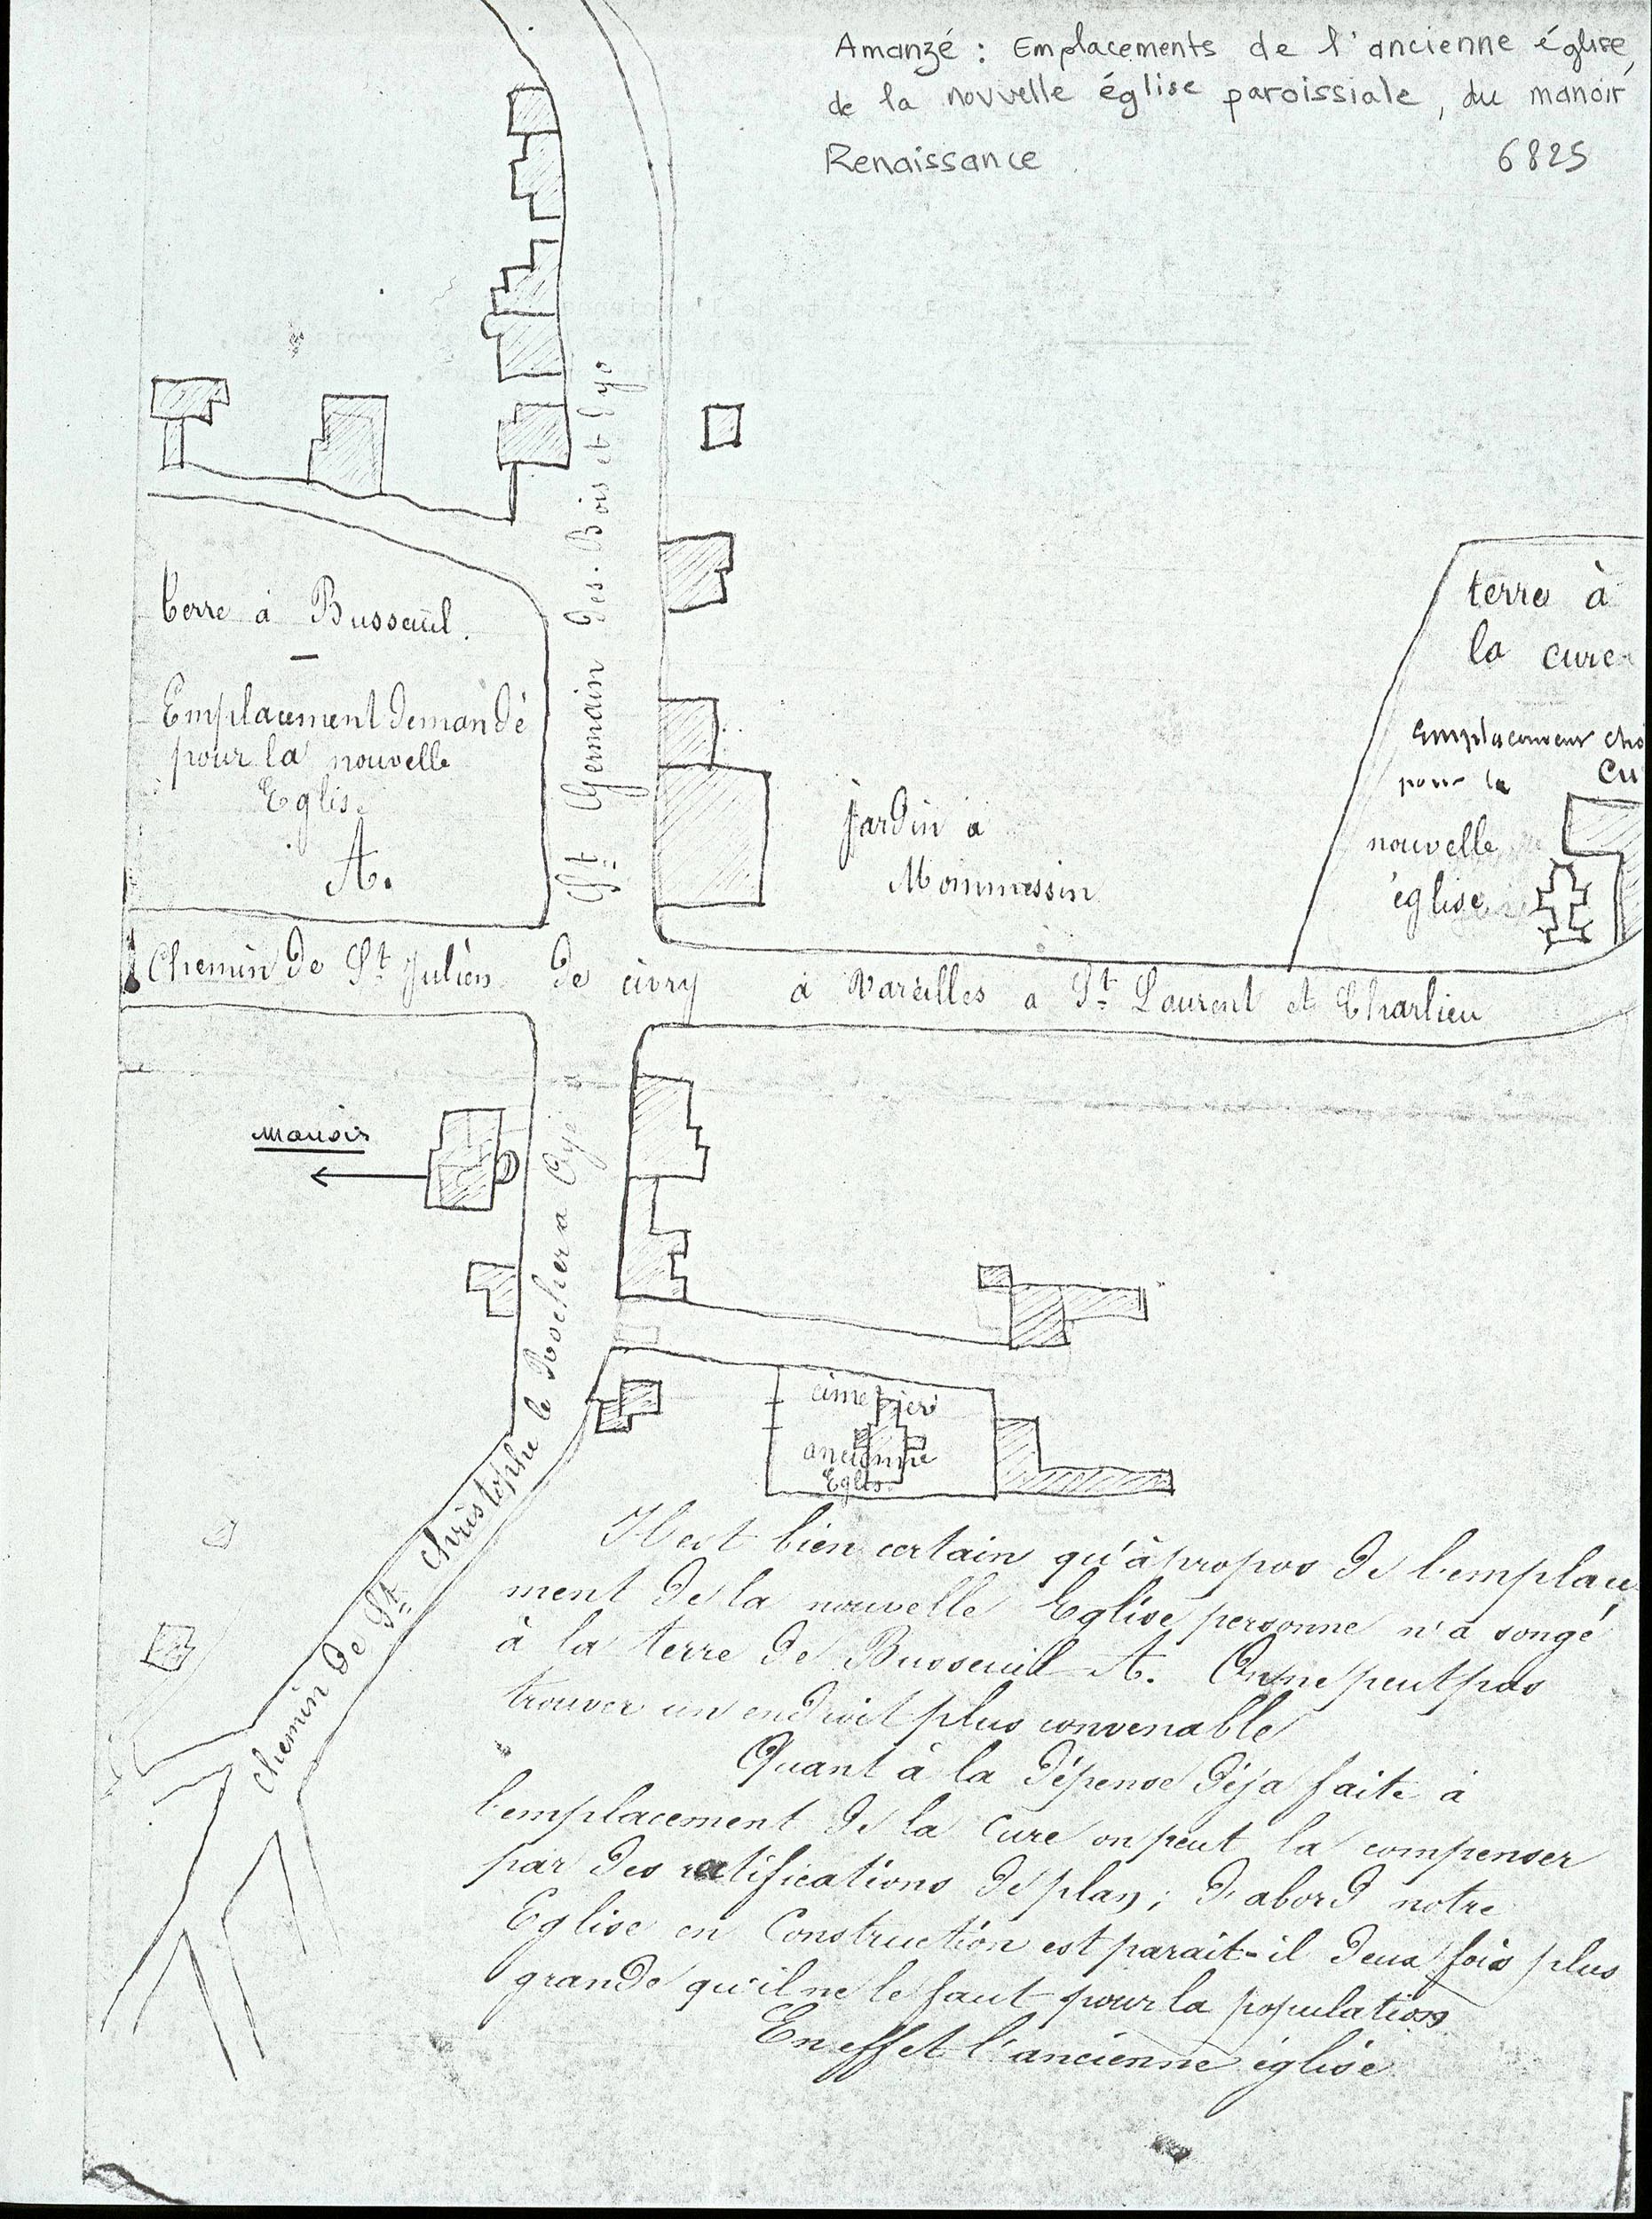 Amanzé : Emplacements de l'ancienne église,
de la nouvelle église paroissiale, du manoir
Renaissance
6825
terre à Busseuil.
Emplacement demandé
pour la nouvelle
Eglise
A.
St Germain des-Bois et Oyé
Jardin à
Mommessin
terre à
la cure
Emplacement cho
pour la
cu
nouvelle
église
Chemin de St Julien de civry à Vareilles a St Laurent et Charlieu
manoir
chemin de St Christophe le Rocher a Oyé
cimetière
ancienne
Eglise
Il est bien certain qu'à propos de l'emplace
ment de la nouvelle Eglise personne n'a songé
à la terre de Busseuil A. On ne peut pas
trouver un endroit plus convenable
Quant à la dépense déja faite à
l'emplacement de la cure on peut la compenser
par des ratifications de plan; d'abord notre
Eglise en Construction est parait-il deux fois plus
grande qu'il ne le faut pour la population
En effet l'ancienne église